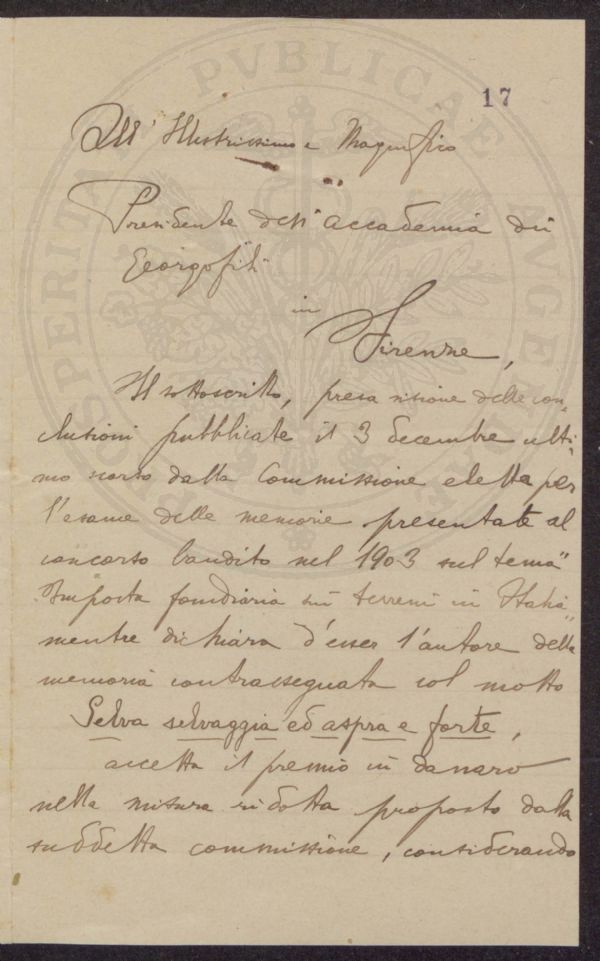 17
All' Illustrissimo e Magnifico
Presidente dell' accademia dei
Georgofili
in
Firenze,
Il sottoscritto, presa visione delle con-
clusioni pubblicate il 3 decembre ulti-
mo scorso dalla Commissione eletta per
l'esame delle memorie presentate al
concorso bandito nel 1903 sul tema "
Imposta fondiaria sui terreni in Italia "
mentre dichiara d'esser l'autore della
memoria contrassegnata col motto
Selva selvaggia ed aspra e forte,
accetta il premio in danaro
nella misura ridotta proposto dalla
suddetta commissione, considerando
PUBLICAE
AUGENDAE
PROSPERITATI